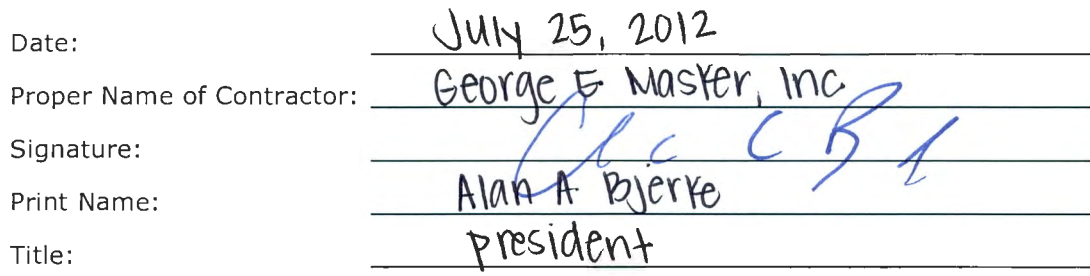 Date: July 25, 2012
Proper Name of Contractor: George E Masker, Inc.
Signature:
Print Name: Alan A Bjerke
Title: president